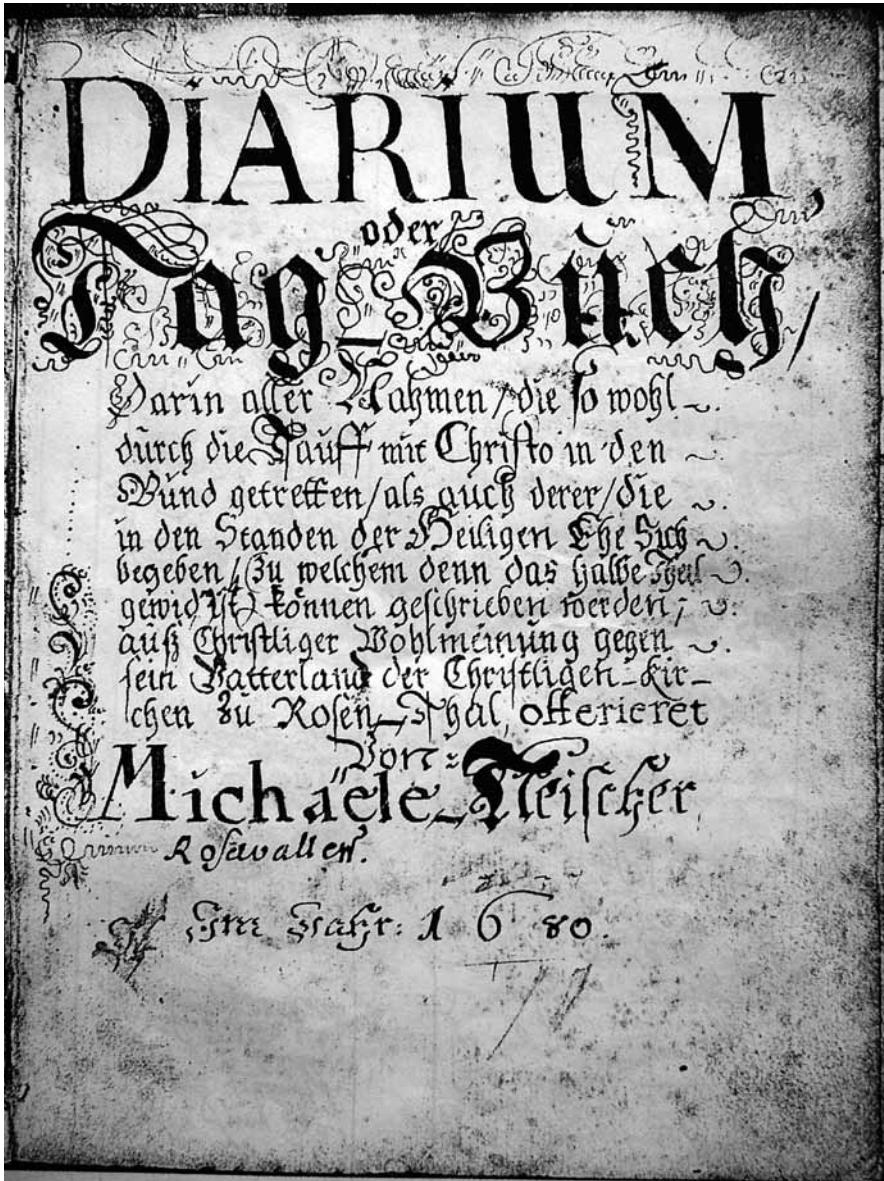 DIARIUM,
oder
Tag-Buch/
Darin aller Nahmen/die so wohl
durch die Tauff mit Christo in den
Bund getretten/als auch derer/die
in den Standen der Heiligen Ehe Sich
begeben/(zu welchem denn das halbe Theil
gewid'ist) können geschrieben werden;
auß Christliger Wohlmeinung gegen
sein Vatterland der Christligen-Kir-
chen zu Rosen-Thal offerieret
Von:
Michaele-Fleischer
Rosavallens.
Im Jahr: 1680.